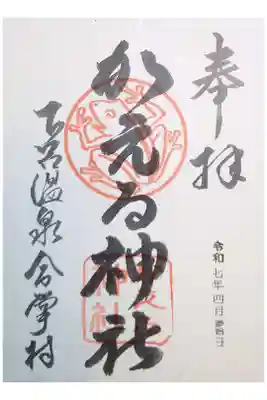 奉拝
令和七年四月吉日
かえる神社
下呂温泉合掌村